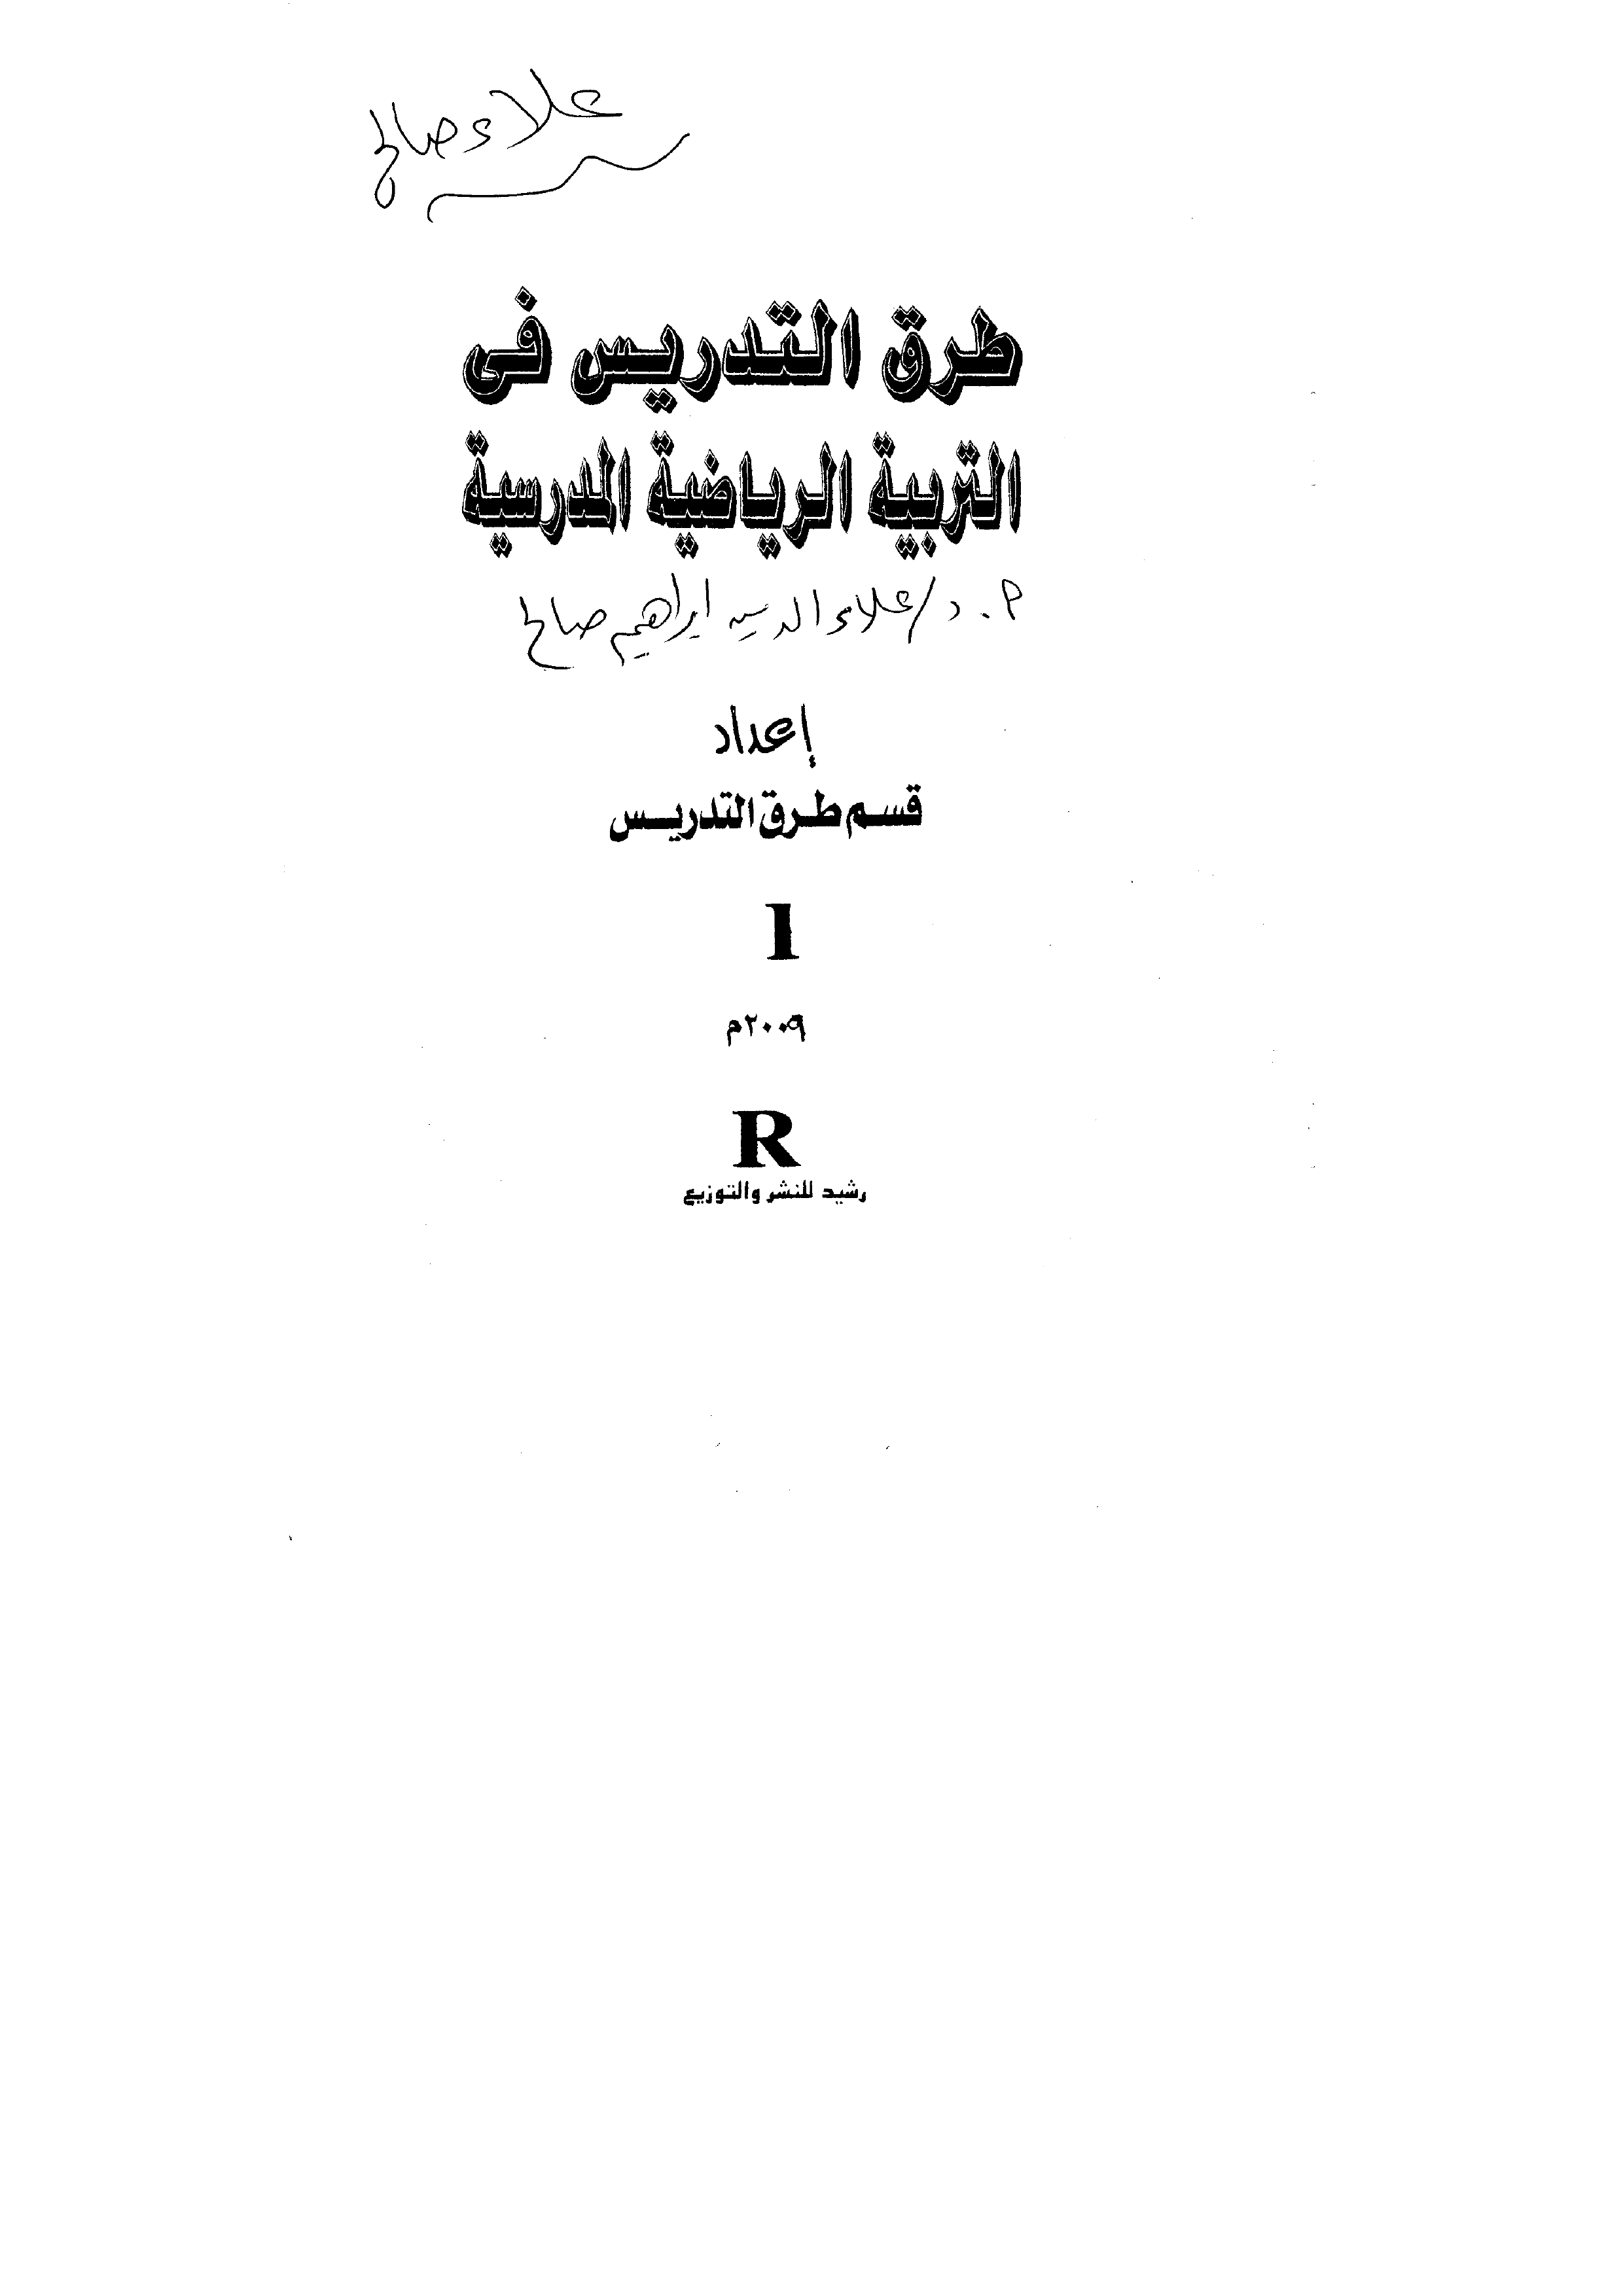 علاء صالح
طرق التدريس فى
التربية الرياضية المدرسية
م.د/علاء الدين ابراهيم صالح
إعداد
قسم طرق التدريس
1
٢٠٠٩م
R
رشيد للنشر والتوزيع